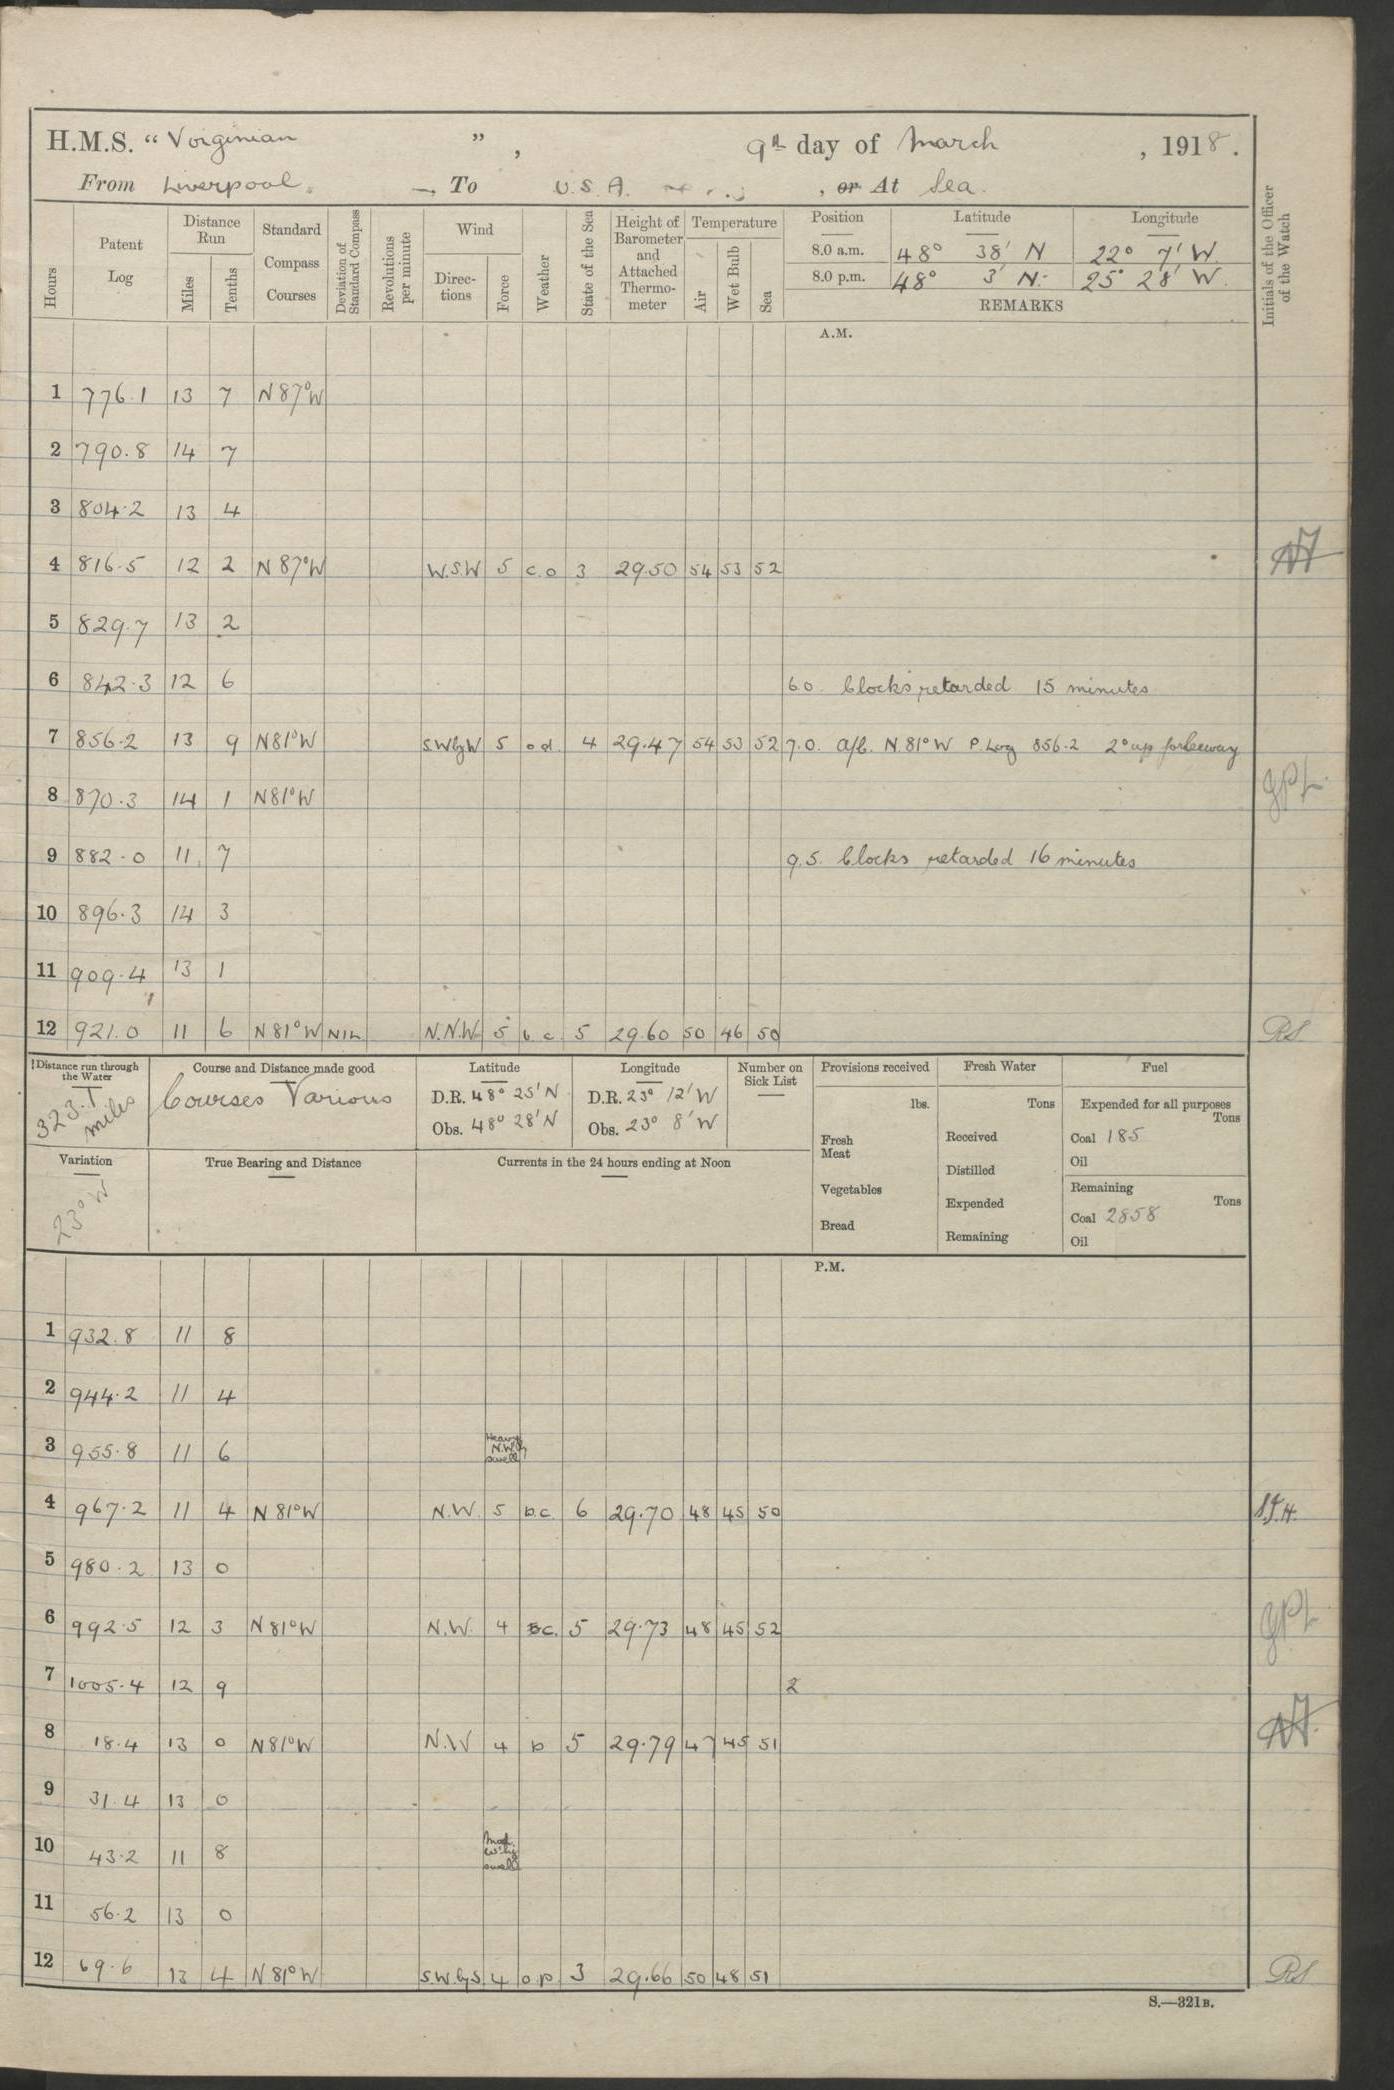 H.M.S. “ Virginian ” , 9th day of March , 1918.
From Liverpool. , To U.S.A. , or At Sea.
Hours Patent Log Distance Run Miles Tenths Standard Compass Courses Deviation of Standard Compass Revolutions per minute Wind Directions Force Weather State of the Sea Height of Barometer and Attached Thermometer Temperature Air Wet Bulb Sea Position Latitude Longitude Initials of the Officer of the Watch
8.0 a.m. 48° 38' N 22° 7' W.
8.0 p.m. 48° 3' N. 25° 28' W.
REMARKS
A.M.
1 776.1 13 7 N87°W
2 790.8 14 7
3 804.2 13 4
4 816.5 12 2 N87°W W.S.W 5 c.o 3 29.50 54 53 52
5 829.7 13 2
6 842.3 12 6 6.0. Clocks retarded 15 minutes
7 856.2 13 9 N81°W S.WbyW 5 o.d. 4 29.47 54 53 52 7.0. A/C. N.81°W P.Log 856.2 2° up for leeway
8 870.3 14 1 N81°W GPL
9 882.0 11 7 9.5. Clocks retarded 16 minutes
10 896.3 14 3
11 909.4 13 1
12 921.0 11 6 N81°W NIL N.N.W. 5 b.c. 5 29.60 50 46 50 RS
Distance run through the Water Course and Distance made good Latitude Longitude Number on Sick List Provisions received Fresh Water Fuel
323.1 miles Courses Various D.R. 48° 25' N D.R. 23° 12' W lbs. Tons Expended for all purposes Tons
Obs. 48° 28' N Obs. 23° 8' W Fresh Meat Received Coal 185
Oil
Variation True Bearing and Distance Currents in the 24 hours ending at Noon Vegetables Distilled Remaining Tons
23° W Bread Expended Coal 2858
Remaining Oil
P.M.
1 932.8 11 8
2 944.2 11 4
3 955.8 11 6 Heavy N.W'ly swell
4 967.2 11 4 N81°W N.W. 5 b.c. 6 29.70 48 45 50 S.J.H.
5 980.2 13 0
6 992.5 12 3 N81°W N.W. 4 BC. 5 29.73 48 45 52 GPL
7 1005.4 12 9 2
8 18.4 13 0 N81°W N.W 4 b 5 29.79 47 45 51
9 31.4 13 0
10 43.2 11 8 Mod. W'ly swell
11 56.2 13 0
12 69.6 13 4 N81°W S.W.byS. 4 o.p. 3 29.66 50 48 51 RS
S.—321B.